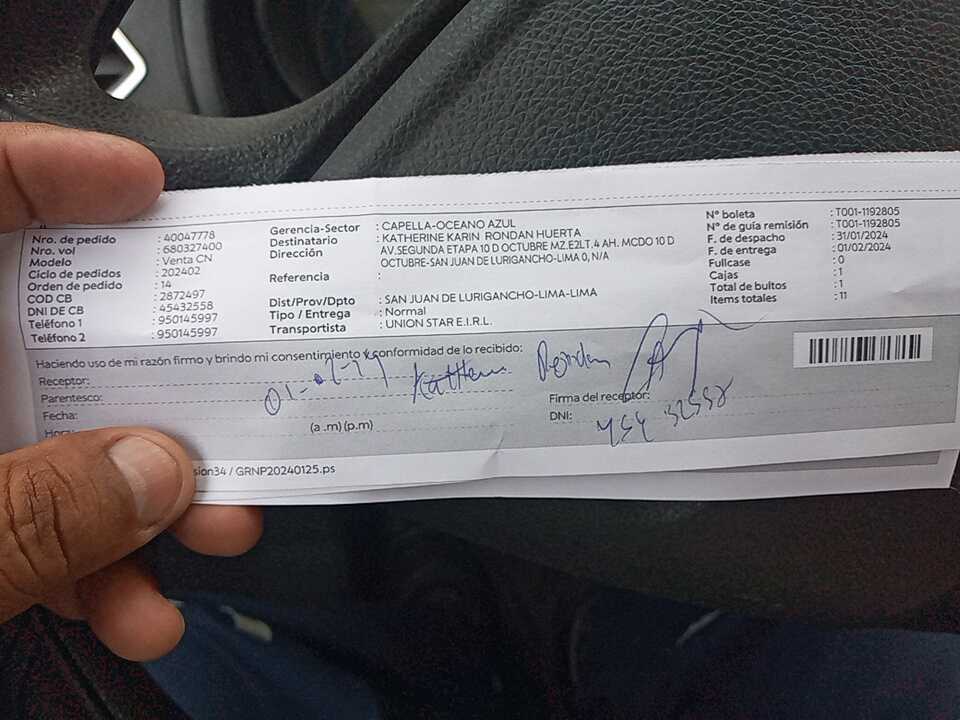 Nro. de pedido : 40047778
Nro. vol : 680327400
Modelo : Venta CN
Ciclo de pedidos : 202402
Orden de pedido : 14
COD CB : 2872497
DNI DE CB : 45432558
Teléfono 1 : 950145997
Teléfono 2 : 950145997
Gerencia-Sector : CAPELLA-OCEANO AZUL
Destinatario : KATHERINE KARIN RONDAN HUERTA
Dirección : AV.SEGUNDA ETAPA 10 D OCTUBRE MZ.E2LT,4 AH. MCDO 10 D
OCTUBRE-SAN JUAN DE LURIGANCHO-LIMA 0, N/A
Referencia :
Dist/Prov/Dpto : SAN JUAN DE LURIGANCHO-LIMA-LIMA
Tipo / Entrega : Normal
Transportista : UNION STAR E.I.R.L.
N° boleta : T001-1192805
N° de guía remisión : T001-1192805
F. de despacho : 31/01/2024
F. de entrega : 01/02/2024
Fullcase : 0
Cajas : 1
Total de bultos : 1
Items totales : 11
Haciendo uso de mi razón firmo y brindo mi consentimiento y conformidad de lo recibido:
Receptor: Rondan
Parentesco:
Fecha: 01-02-24
Hora: (a .m) (p.m)
Firma del receptor:
DNI: 45432558
sion34 / GRNP20240125.ps